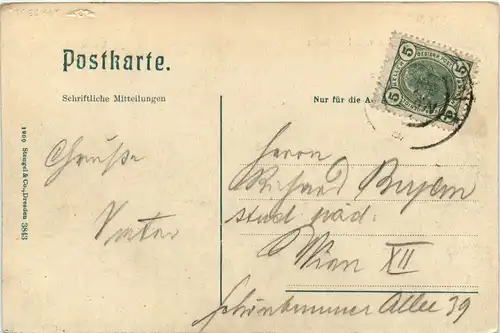 Postkarte.
Schriftliche Mitteilungen
Nur für die A
Grüße
Vater
Herrn
Richard
stud päd.
Wien XII
Schönbrunner Allee 39
1909 Stengel & Co., Dresden 3843
5 5